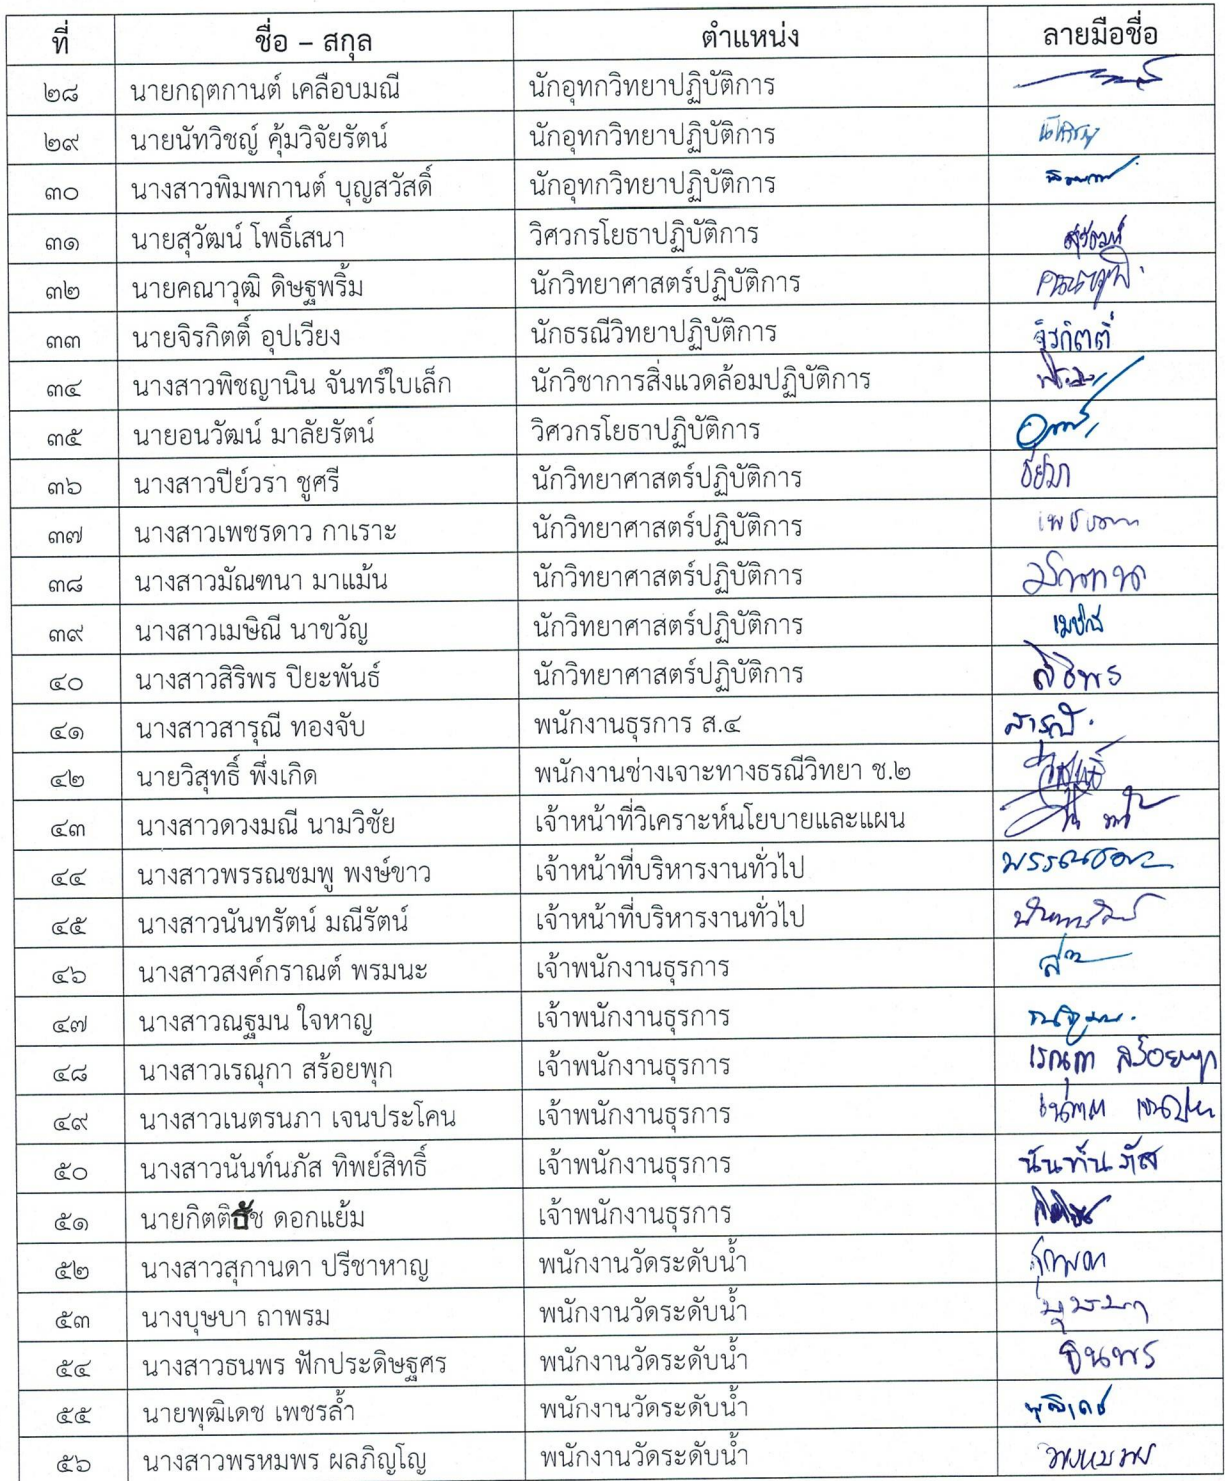 ที่ ชื่อ – สกุล ตำแหน่ง ลายมือชื่อ
๒๘ นายกฤตกานต์ เคลือบมณี นักอุทกวิทยาปฏิบัติการ
๒๙ นายนัทวิชญ์ คุ้มวิจัยรัตน์ นักอุทกวิทยาปฏิบัติการ
๓๐ นางสาวพิมพกานต์ บุญสวัสดิ์ นักอุทกวิทยาปฏิบัติการ
๓๑ นายสุวัฒน์ โพธิ์เสนา วิศวกรโยธาปฏิบัติการ
๓๒ นายคณาวุฒิ ดิษฐพริ้ม นักวิทยาศาสตร์ปฏิบัติการ
๓๓ นายจิรกิตติ์ อุปเวียง นักธรณีวิทยาปฏิบัติการ จิรกิตติ์
๓๔ นางสาวพิชญานิน จันทร์ใบเล็ก นักวิชาการสิ่งแวดล้อมปฏิบัติการ
๓๕ นายอนวัฒน์ มาลัยรัตน์ วิศวกรโยธาปฏิบัติการ
๓๖ นางสาวปีย์วรา ชูศรี นักวิทยาศาสตร์ปฏิบัติการ
๓๗ นางสาวเพชรดาว กาเราะ นักวิทยาศาสตร์ปฏิบัติการ
๓๘ นางสาวมัณฑนา มาแม้น นักวิทยาศาสตร์ปฏิบัติการ
๓๙ นางสาวเมษิณี นาขวัญ นักวิทยาศาสตร์ปฏิบัติการ เมษิณี
๔๐ นางสาวสิริพร ปิยะพันธ์ นักวิทยาศาสตร์ปฏิบัติการ สิริพร
๔๑ นางสาวสารุณี ทองจับ พนักงานธุรการ ส.๔ สารุณี
๔๒ นายวิสุทธิ์ พึ่งเกิด พนักงานช่างเจาะทางธรณีวิทยา ช.๒
๔๓ นางสาวดวงมณี นามวิชัย เจ้าหน้าที่วิเคราะห์นโยบายและแผน
๔๔ นางสาวพรรณชมพู พงษ์ขาว เจ้าหน้าที่บริหารงานทั่วไป
๔๕ นางสาวนันทรัตน์ มณีรัตน์ เจ้าหน้าที่บริหารงานทั่วไป
๔๖ นางสาวสงค์กราณต์ พรมนะ เจ้าพนักงานธุรการ
๔๗ นางสาวณฐมน ใจหาญ เจ้าพนักงานธุรการ
๔๘ นางสาวเรณุกา สร้อยพุก เจ้าพนักงานธุรการ เรณุกา สร้อยพุก
๔๙ นางสาวเนตรนภา เจนประโคน เจ้าพนักงานธุรการ
๕๐ นางสาวนันท์นภัส ทิพย์สิทธิ์ เจ้าพนักงานธุรการ นันท์นภัส
๕๑ นายกิตติธัช ดอกแย้ม เจ้าพนักงานธุรการ
๕๒ นางสาวสุกานดา ปรีชาหาญ พนักงานวัดระดับน้ำ
๕๓ นางบุษบา ถาพรม พนักงานวัดระดับน้ำ บุษบา
๕๔ นางสาวธนพร ฟักประดิษฐศร พนักงานวัดระดับน้ำ ธนพร
๕๕ นายพุฒิเดช เพชรล้ำ พนักงานวัดระดับน้ำ พุฒิเดช
๕๖ นางสาวพรหมพร ผลภิญโญ พนักงานวัดระดับน้ำ